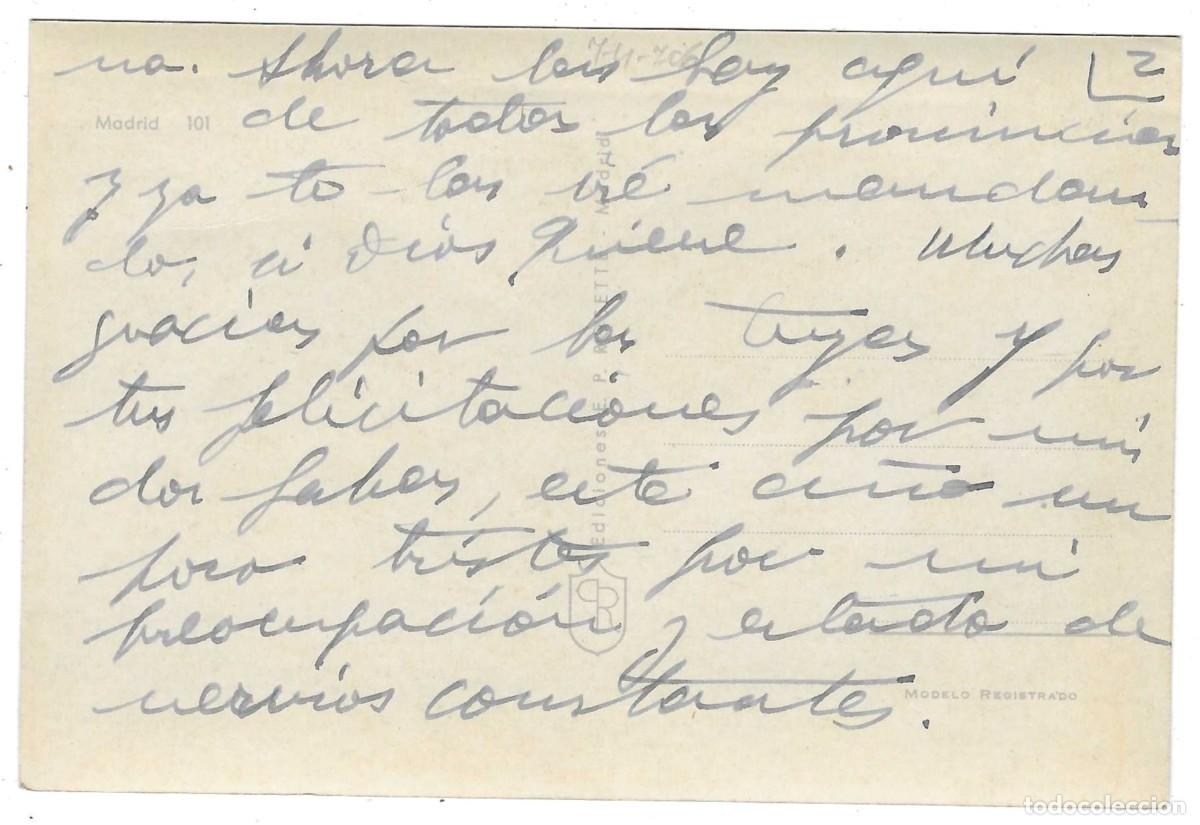 na. Ahora las hay aquí 2
Madrid 101
de todas las provincias
y ya te las iré mandan-
do, si Dios quiere. Muchas
gracias por las tuyas y por
tus felicitaciones por mis
dos fechas, este año un
poco tristes por mi
preocupación y estado de
nervios constantes.
Ediciones E. P. - Madrid
MODELO REGISTRADO
todocoleccion